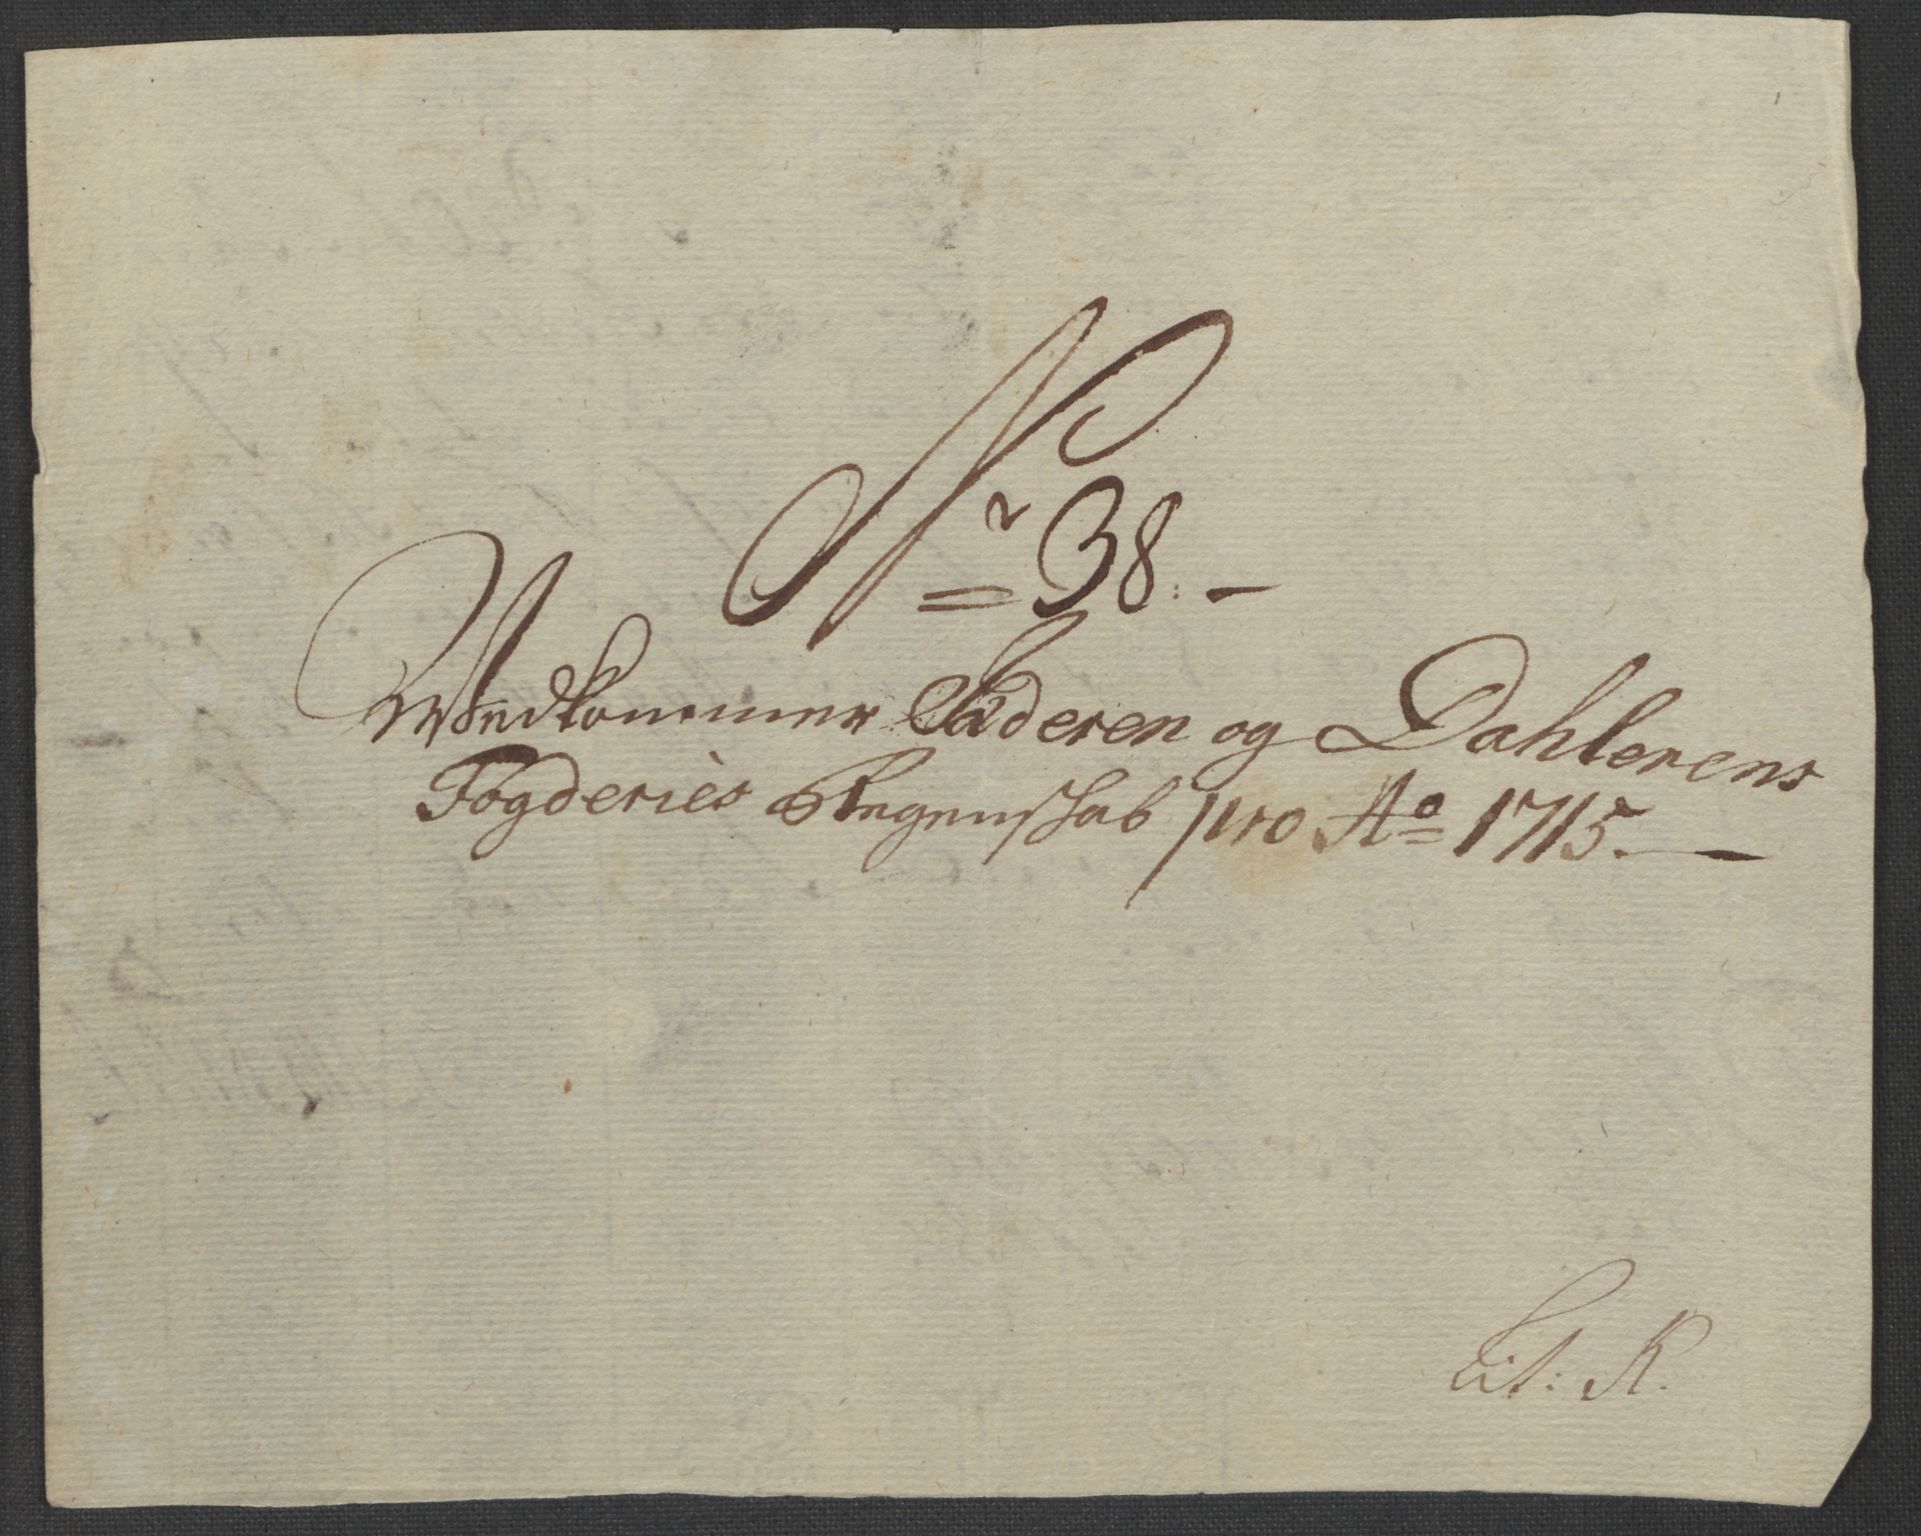 Nr 38. –
Wedkommer Jæderen og Dahlerens
Fogderies Regenschab pro Ao 1715. —
Lit: R.